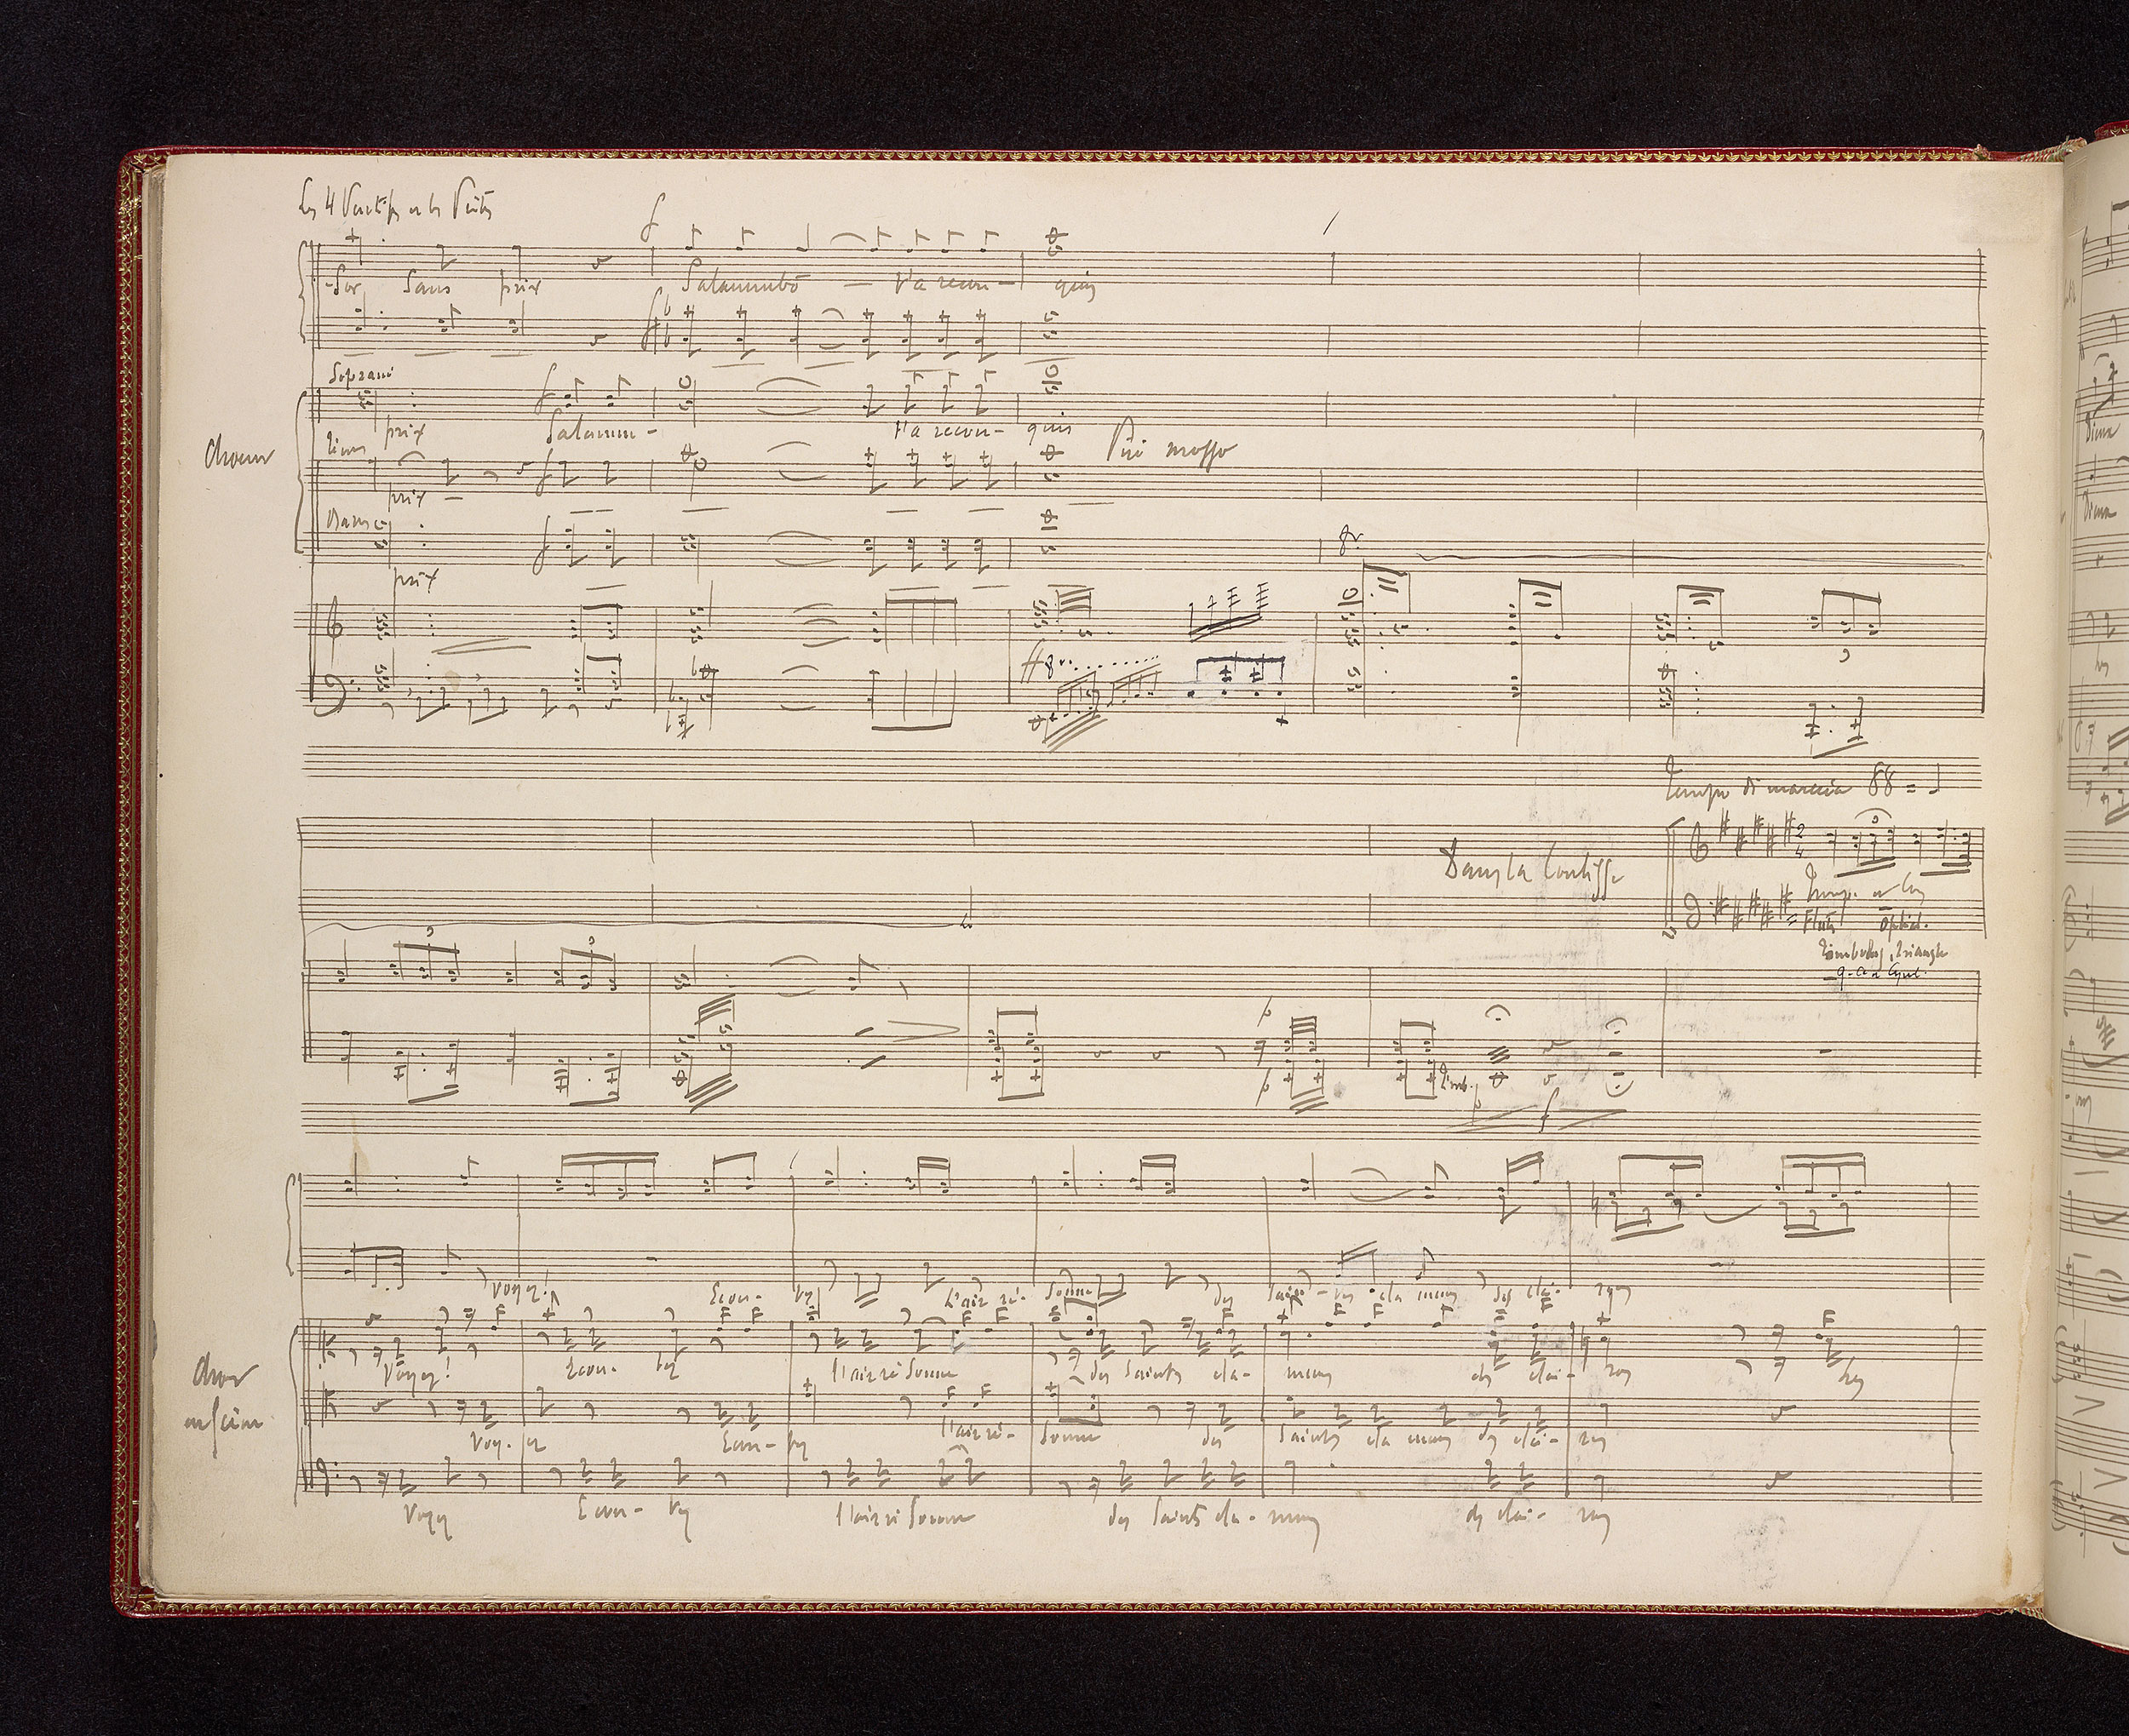 Les 4 et les Prêtres
-Sor Sans prix Salammbô — t'a recon — quis
Soprani
prix Salamm - t'a recon- quis
Choeur
Ténors
Più mosso
prix -
Basses
prix
8va
ff 8va
Tempo di marcia 88 =
Dans la Coulisse
2 4
3
Tromp. et Cors
Flûtes Ophicl.
Timbales, triangle
g. c. et Cymb.
3 3
p
p Timb.
p f
Voyez! Écou- tez l'air ré- sonne des saints cla meurs des clai- rons
Choeur
en scène
Voyez! Écou- tez l'air résonne des saints cla- meurs des clai- rons
Voy- ez Écou- tez l'air ré- sonne des saints cla meurs des clai- rons
Voyez Écou- tez l'air résonne des saints cla- meurs des clai- rons